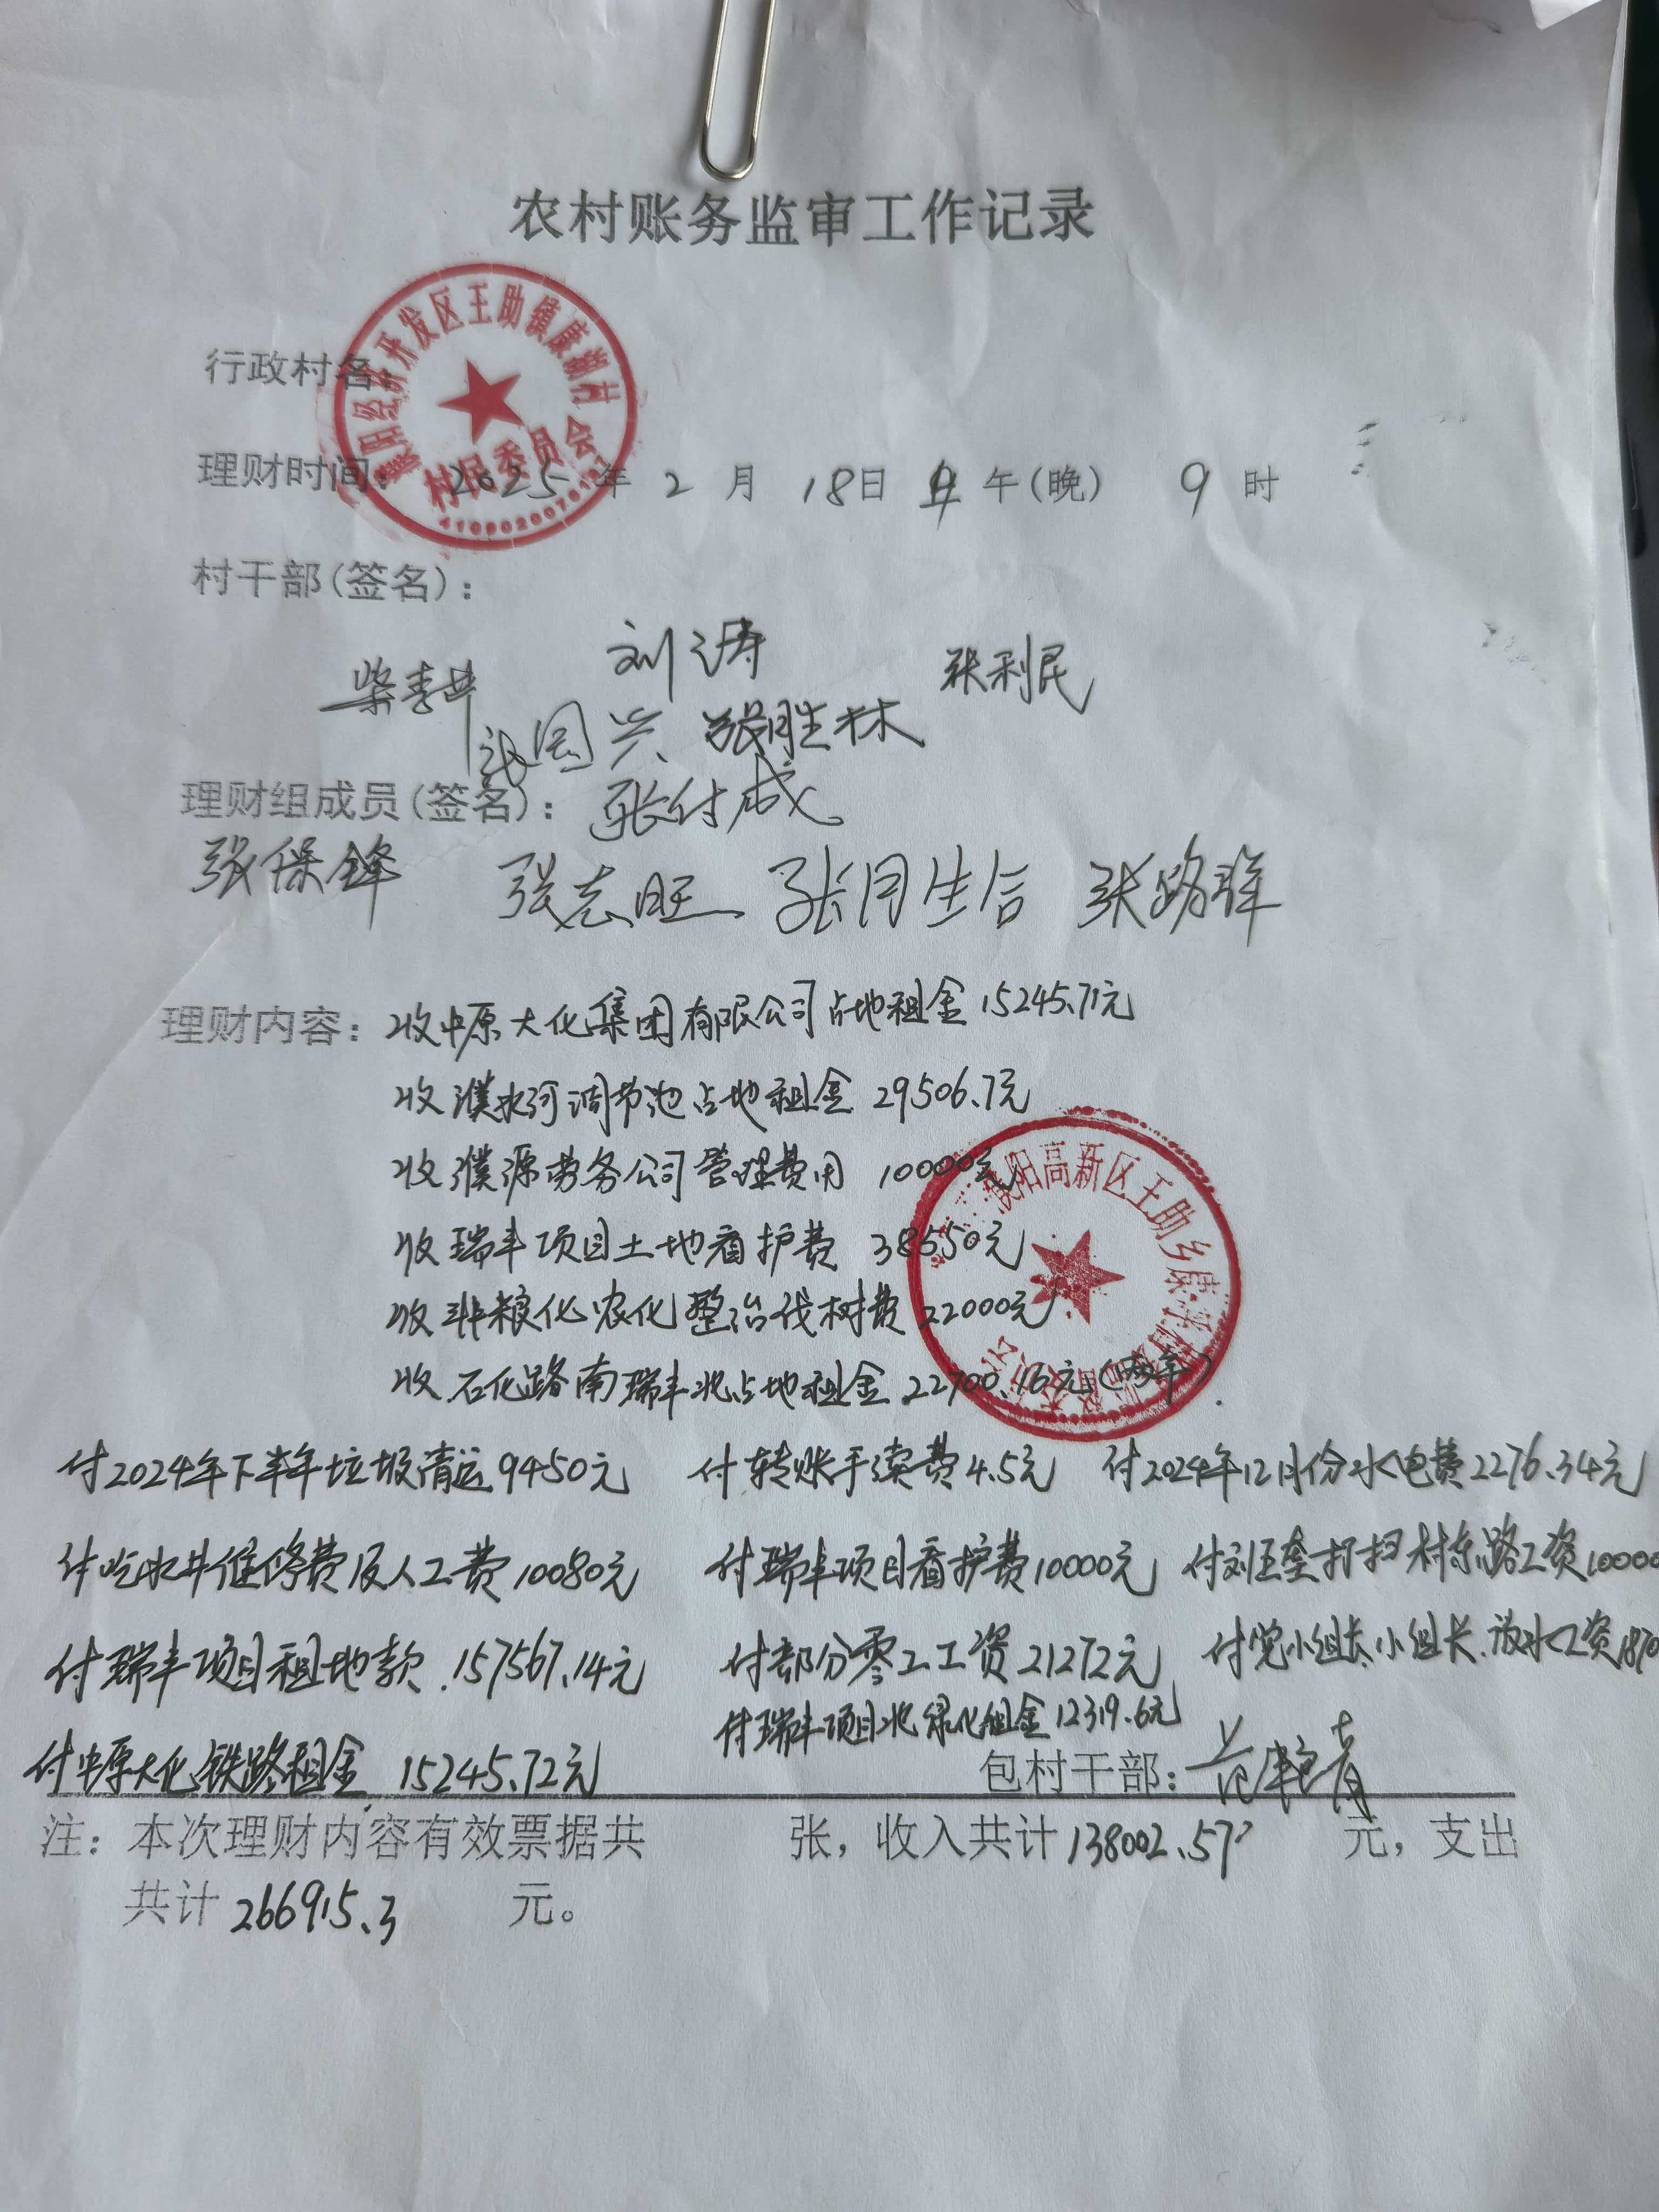 农村账务监审工作记录
濮阳经济开发区王助镇康湖村
村民委员会
行政村名：
理财时间： 2025年 2 月 18日 午(晚) 9 时
村干部(签名)：
刘涛 张利民
张国兴 张胜林
理财组成员(签名)： 张付成
张保锋 张志旺 张同生 张路
理财内容： 收中原大化集团有限公司占地租金 15245.71元
收濮水河调节池占地租金 29506.7元
收濮源劳务公司管理费用 10000元
收瑞丰项目土地看护费 38550元
收非粮化农化整治伐树费 22000元
收石化路南瑞丰北占地租金 22700.16元(两年)
濮阳高新区王助乡康
付2024年下半年垃圾清运9450元 付转账手续费4.5元 付2024年12月份水电费2276.34元
付吃水井维修费及人工费10080元 付瑞丰项目看护费10000元 付刘 打扫村东路工资10000
付瑞丰项目租地款.157567.14元 付部分零工工资21272元 付党小组长.小组长.放水工资1870
付瑞丰项目北绿化租金12319.6元
付中原大化铁路租金 15245.72元 包村干部：范艳青
注：本次理财内容有效票据共 张，收入共计138002.57 元，支出
共计266915.3 元。